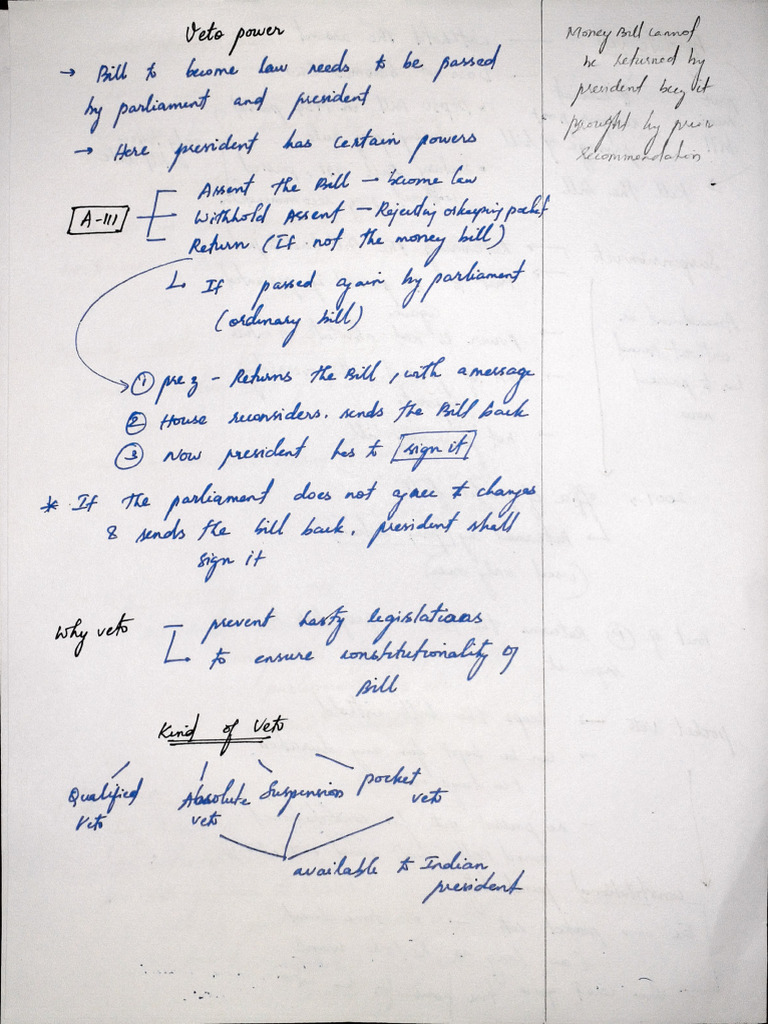 Veto power
→ Bill to become law needs to be passed
by parliament and president
→ Here president has certain powers
A-111
Assent the Bill - become law
Withhold Assent - Rejecting or keeping pocket
Return (If not the money bill)
↳ If passed again by parliament
(ordinary bill)
① prez - Returns the Bill, with a message
② House reconsiders. sends the Bill back
③ Now president has to sign it
* If the parliament does not agree to changes
& sends the bill back. president shall
sign it
Why veto - prevent hasty legislations
to ensure constitutionality of
Bill
Kind of Veto
Qualified
Veto
Absolute
veto
Suspension
pocket
veto
available to Indian
president
Money Bill cannot
be returned by
president bcz it
brought by prior
recommendation